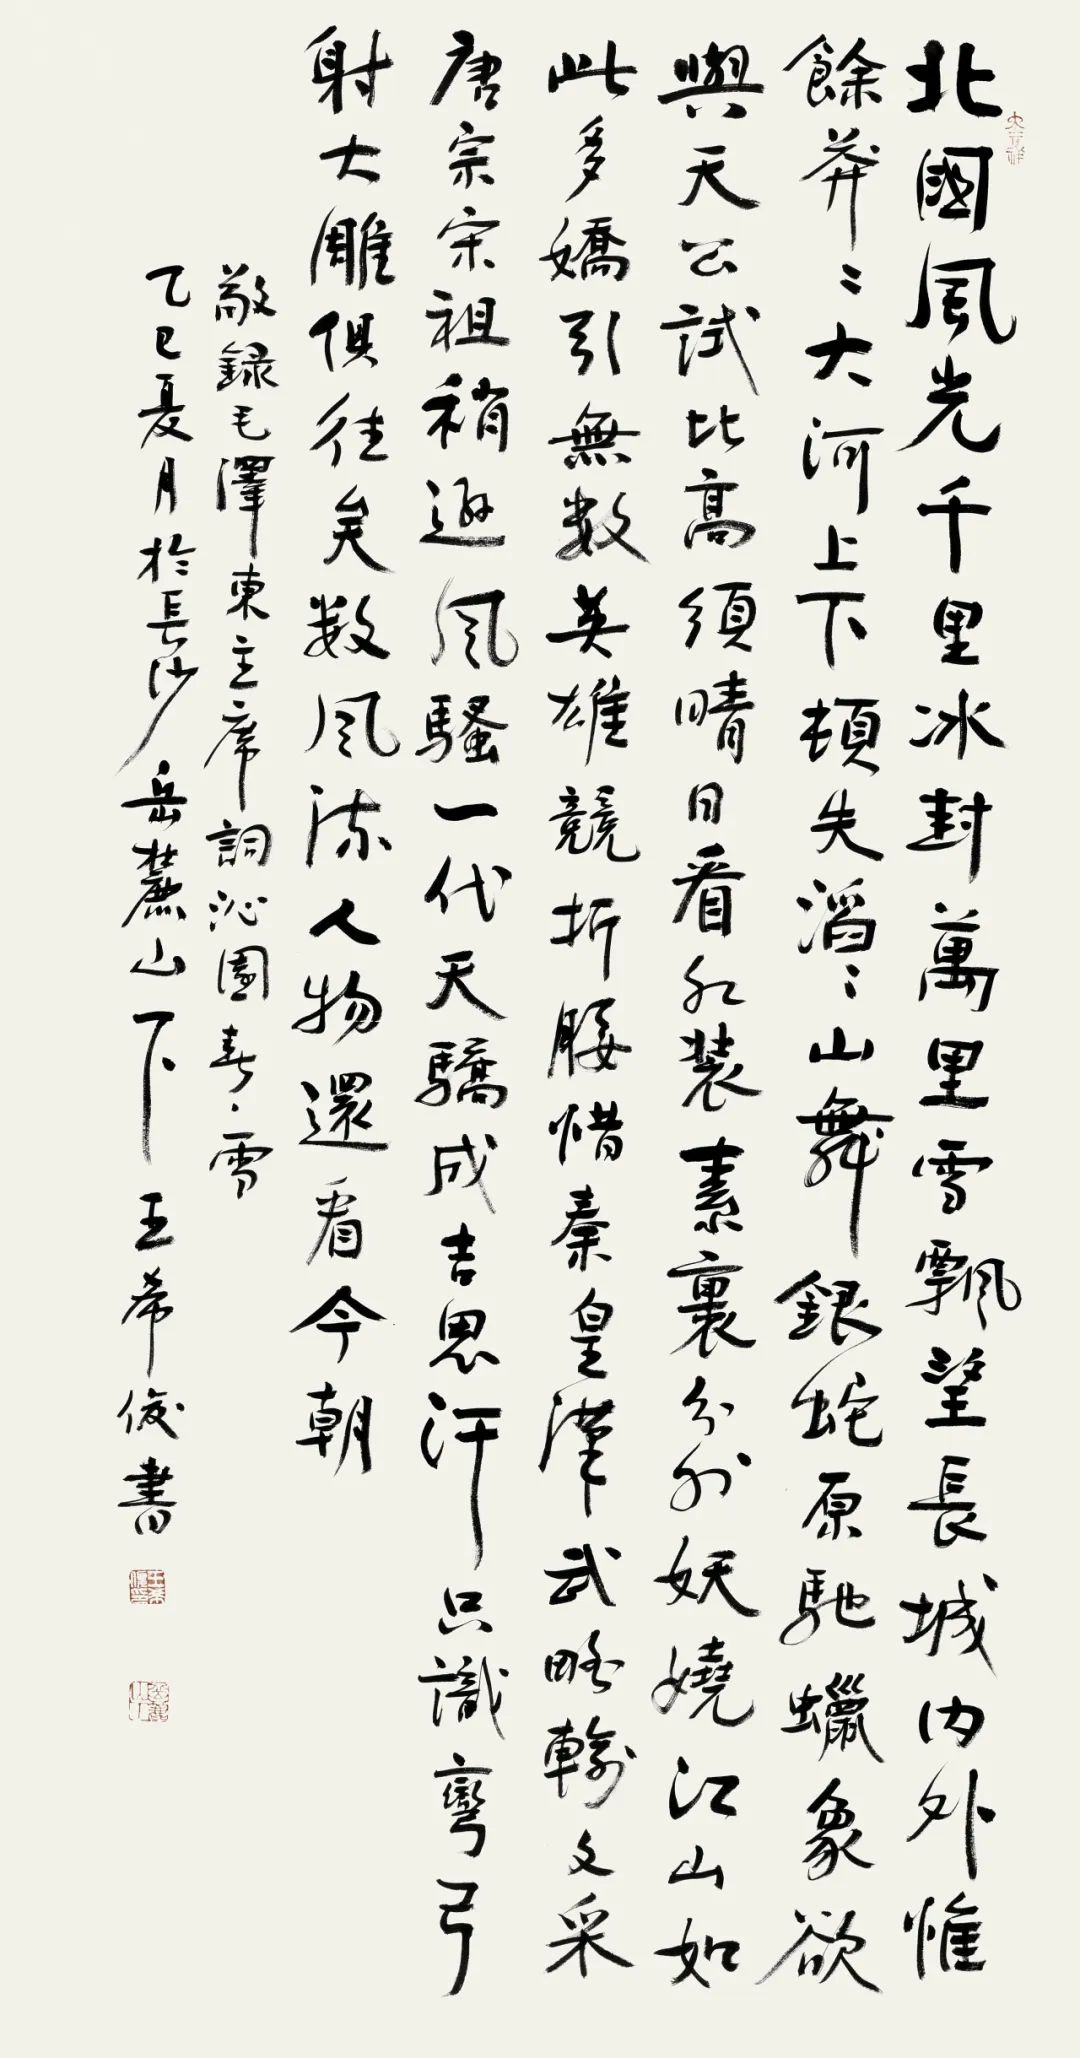 北國風光千里冰封萬里雪飄望長城內外惟
餘莽〻大河上下頓失滔〻山舞銀蛇原馳蠟象欲
與天公試比高須晴日看紅裝素裹分外妖嬈江山如
此多嬌引無數英雄競折腰惜秦皇漢武略輸文采
唐宗宋祖稍遜風騷一代天驕成吉思汗只識彎弓
射大雕俱往矣數風流人物還看今朝
敬錄毛澤東主席詞沁園春·雪
乙巳夏月於長沙岳麓山下王希俊書